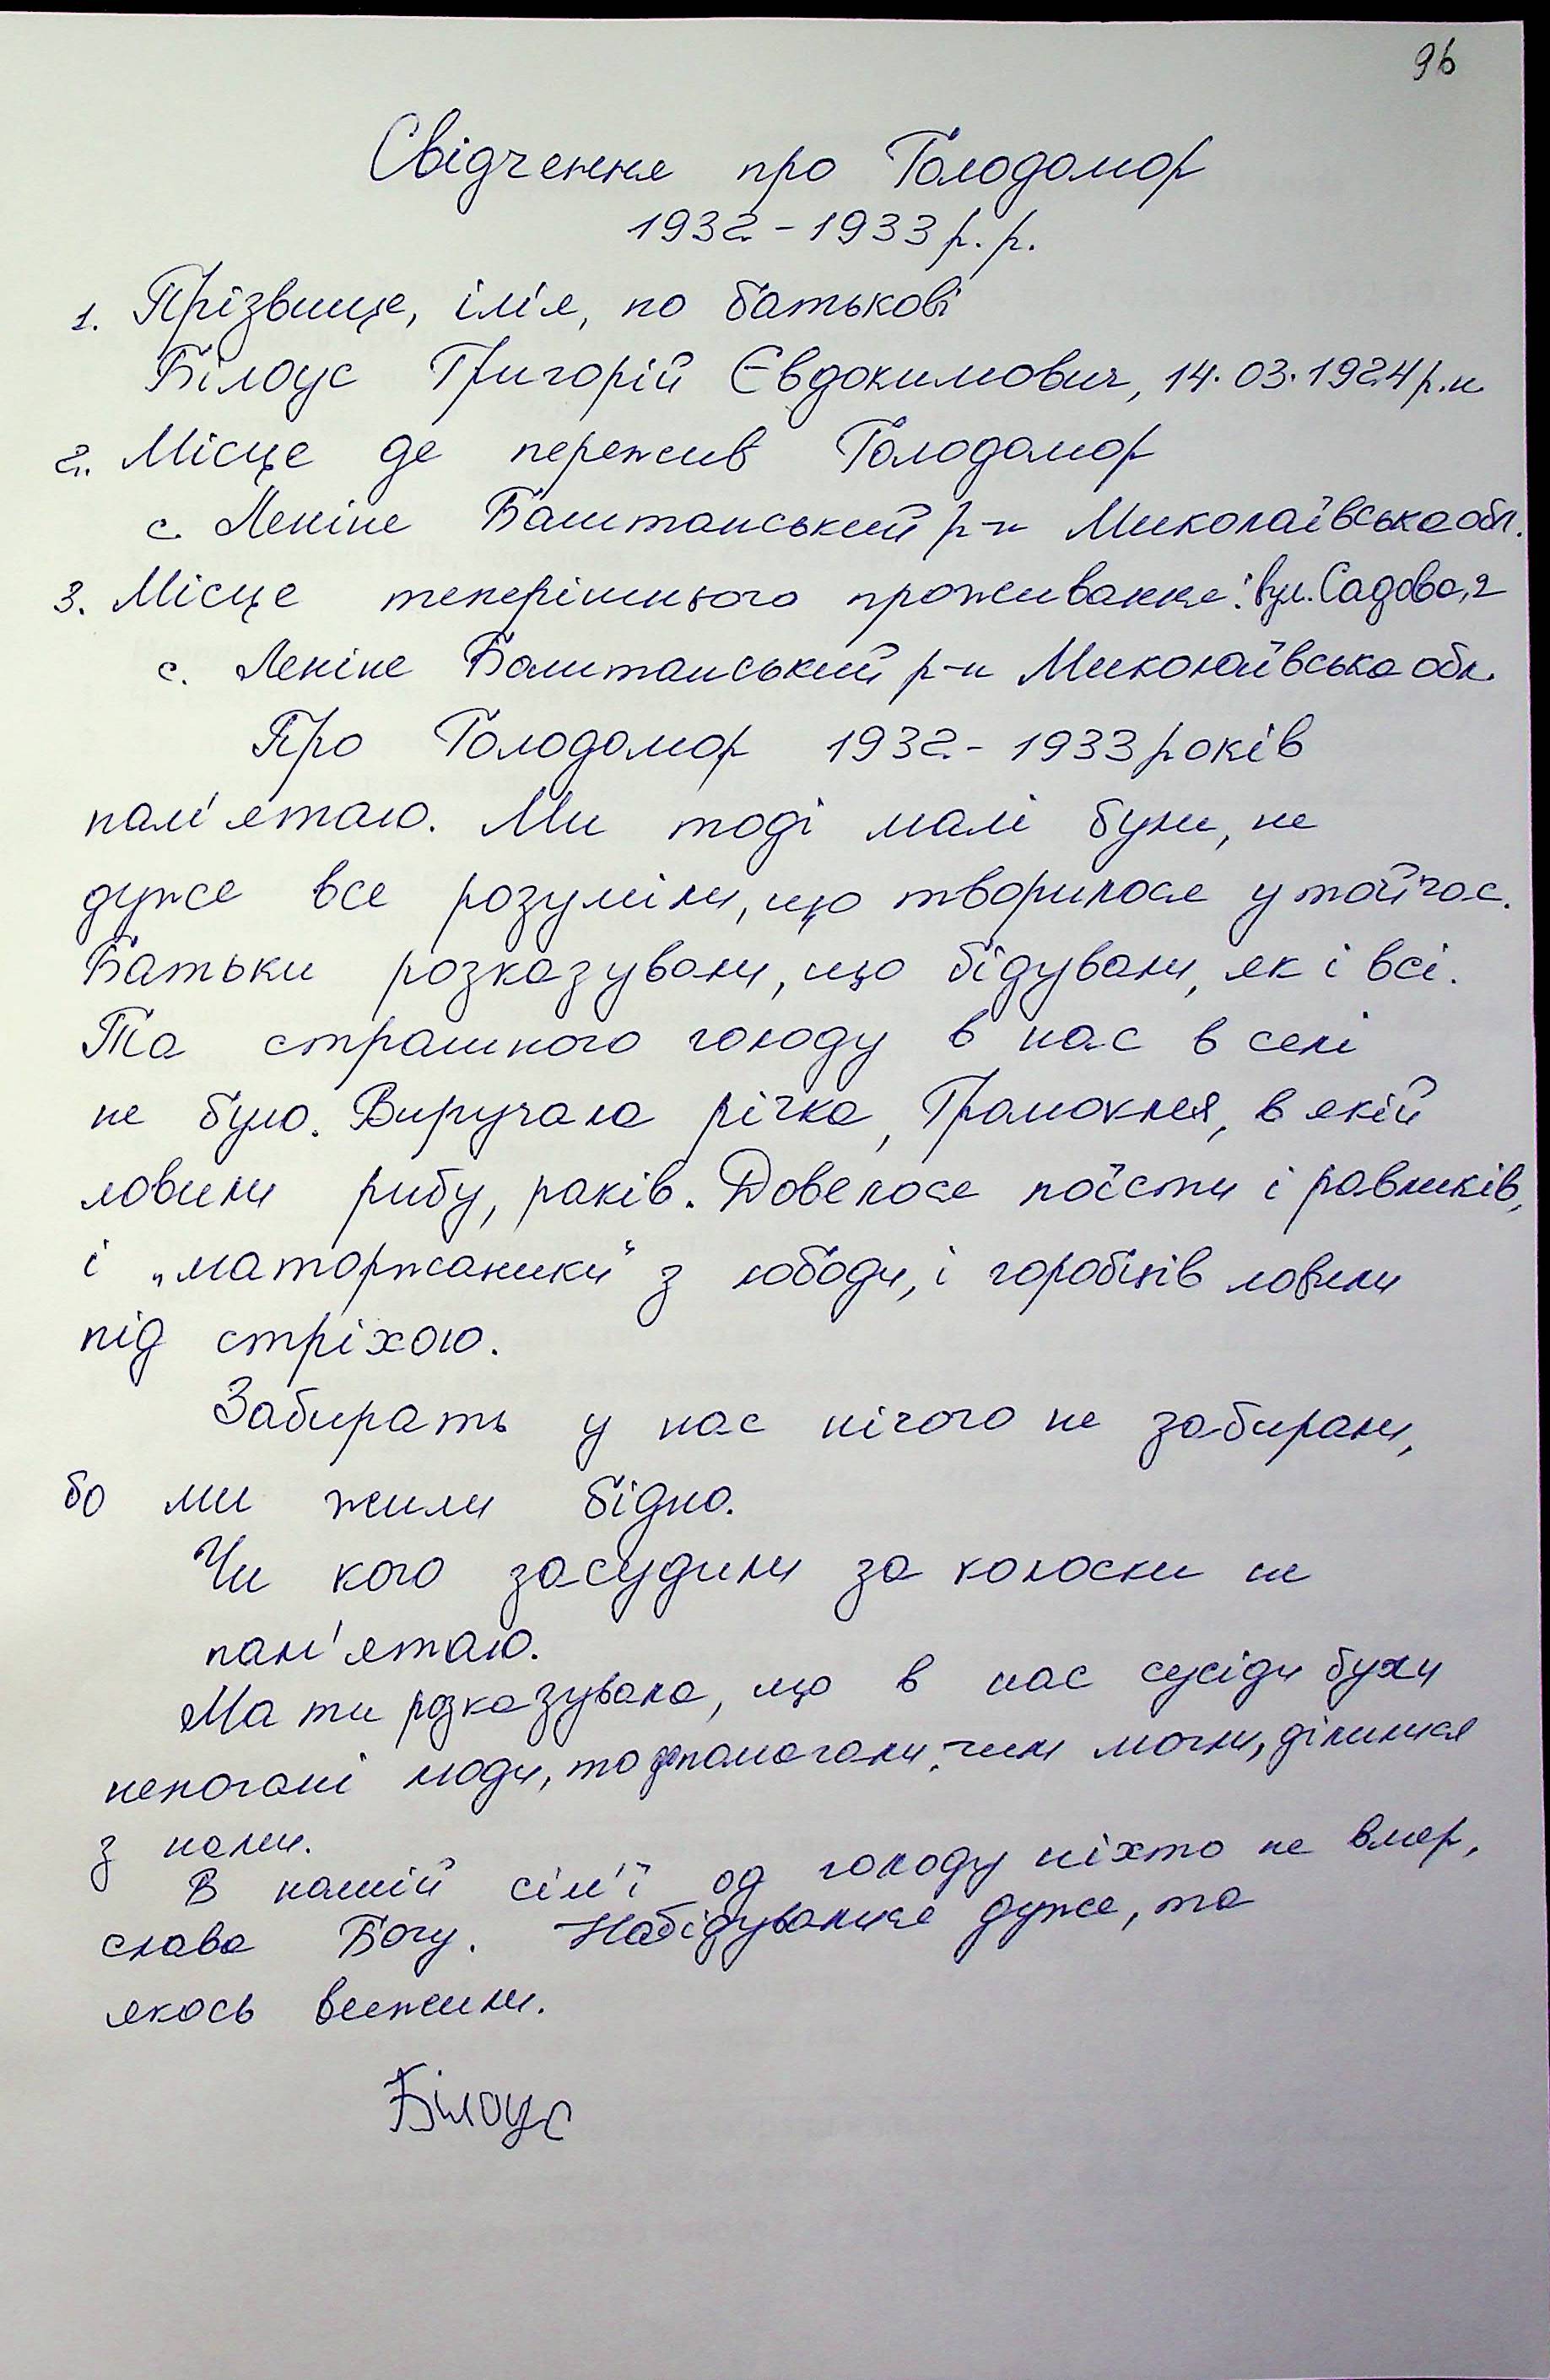 96
Свідчення про Голодомор
1932-1933 р.р.
1. Прізвище, ім'я, по батькові
Білоус Григорій Євдокимович, 14.03.1924 р.н.
2. Місце де пережив Голодомор
с. Леніне Баштанський р-н Миколаївська обл.
3. Місце теперішнього проживання: вул. Садова, 2
с. Леніне Баштанський р-н Миколаївська обл.
Про Голодомор 1932-1933 років
пам'ятаю. Ми тоді малі були, не
дуже все розуміли, що творилося у той час.
Батьки розказували, що бідували, як і всі.
Та страшного голоду в нас в селі
не було. Виручала річка, Громоклея, в якій
ловили рибу, раків. Довелося поїсти і равликів,
і „маторжаники" з лободи, і горобців ловили
під стріхою.
Забирать у нас нічого не забирали,
бо ми жили бідно.
Чи кого засудили за колоски не
пам'ятаю.
Мати розказувала, що в нас сусіди були
непогані люди, то допомагали, чим могли, ділилися
з нами.
В нашій сім'ї од голоду ніхто не вмер,
слава Богу. Набідувалися дуже, та
якось вижили.
Білоус